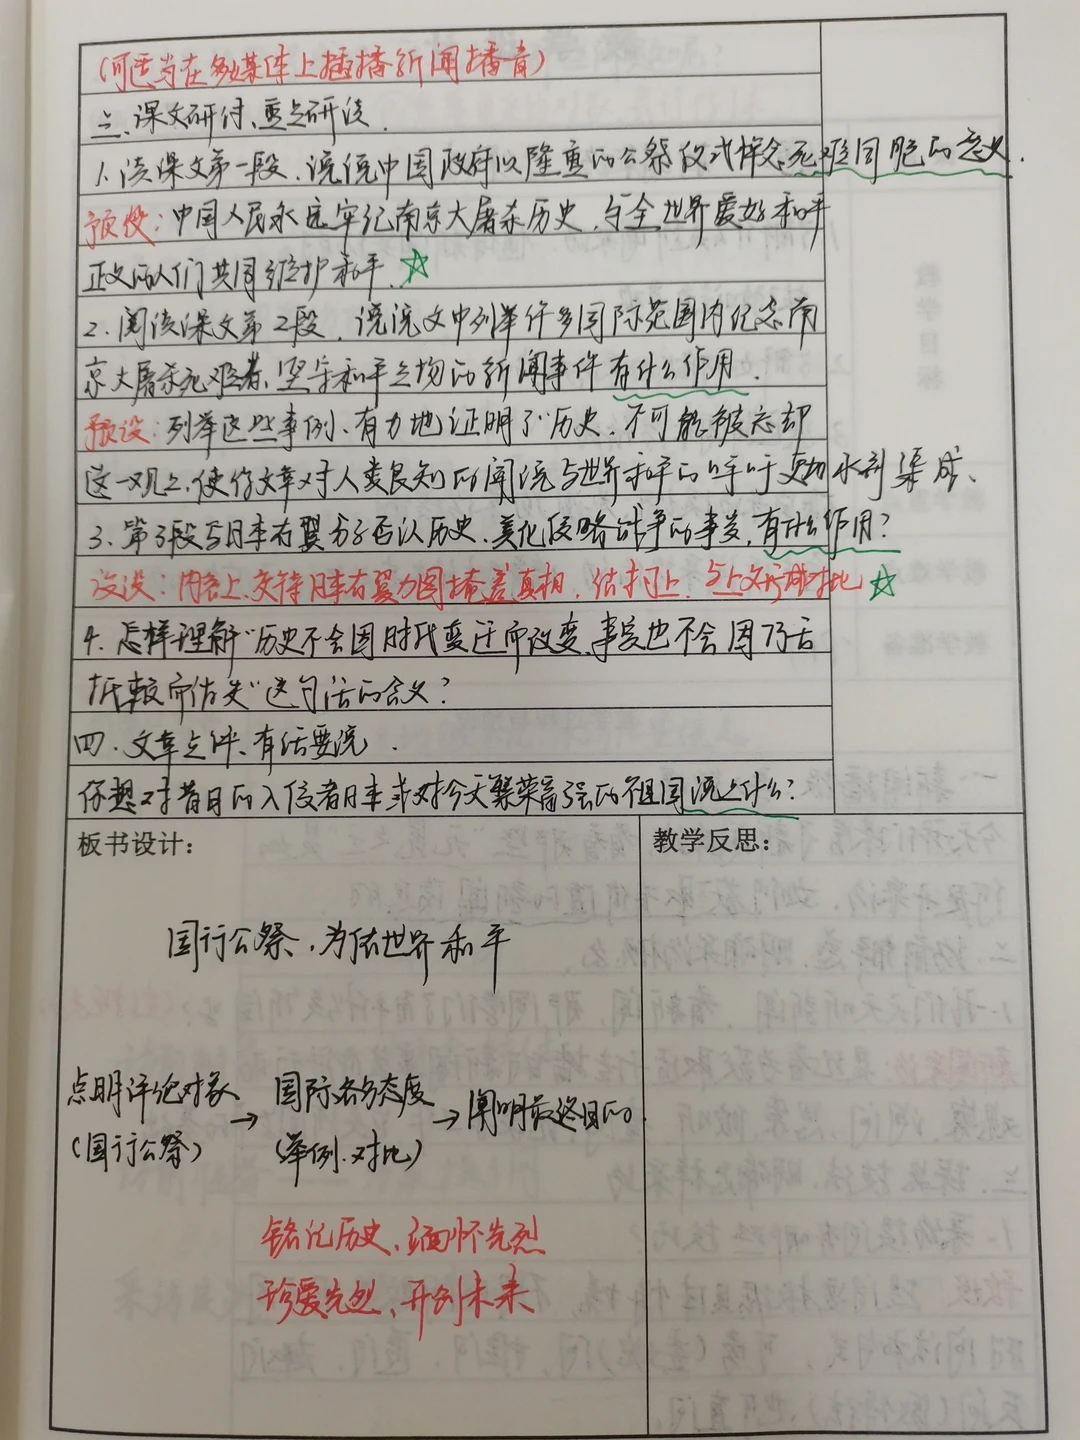 (可适当在多媒体上插播新闻播音)
三、课文研讨、重点研读.
1、读课文第一段、说说中国政府以隆重的公祭仪式悼念死难同胞的意义.
预设:中国人民永远牢记南京大屠杀历史、与全世界爱好和平
正义的人们共同维护和平.☆
2、阅读课文第2段、说说文中列举许多国际范围内纪念南
京大屠杀死难者、坚守和平之物的新闻事件有什么作用.
预设:列举这些事例、有力地证明了历史、不可能被忘却
这一观点、使得文章对人类良知的阐说与世界和平的呼吁更加水到渠成、
3、第3段与日本右翼分子否认历史、美化侵略战争的事实,有什么作用?
预设:内容上、交待日本右翼力图掩盖真相,结构上、与上文形成对比☆
4、怎样理解"历史不会因时代变迁而改变、事实也不会因巧舌
抵赖而消失"这句话的含义?
四、文章点评、有话要说.
你想对昔日的入侵者日本或对今天繁荣富强的祖国说点什么?
板书设计:
教学反思:
国行公祭、为佑世界和平
点明评论对象→国际各方态度→阐明最终目的.
(国行公祭) (举例、对比)
铭记历史、缅怀先烈
珍爱先烈、开创未来